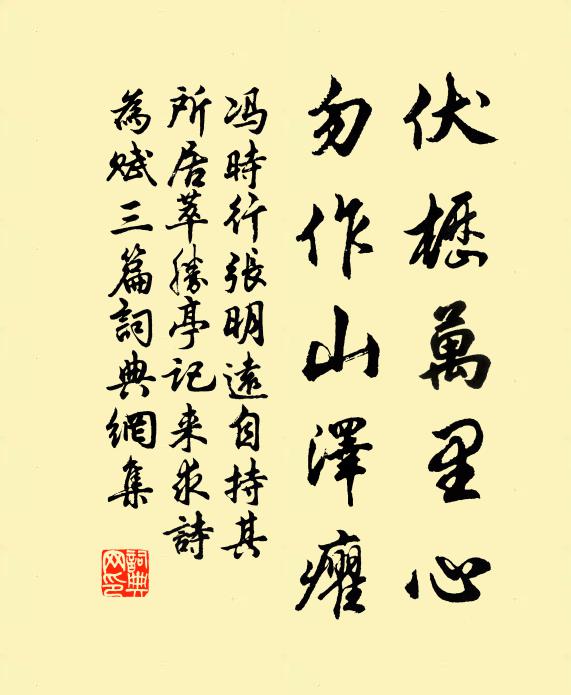 伏櫪萬里心
勿作山澤癯
馮時行張明遠自持其
所居萃勝亭記来求詩
為賦三篇詞典網集
詞典
网印